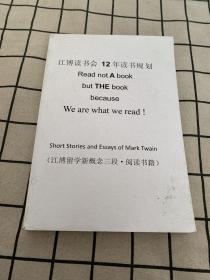 江博读书会 12 年读书规划
Read not A book
but THE book
because
We are what we read !
Short Stories and Essays of Mark Twain
（江博留学新概念三段·阅读书籍）